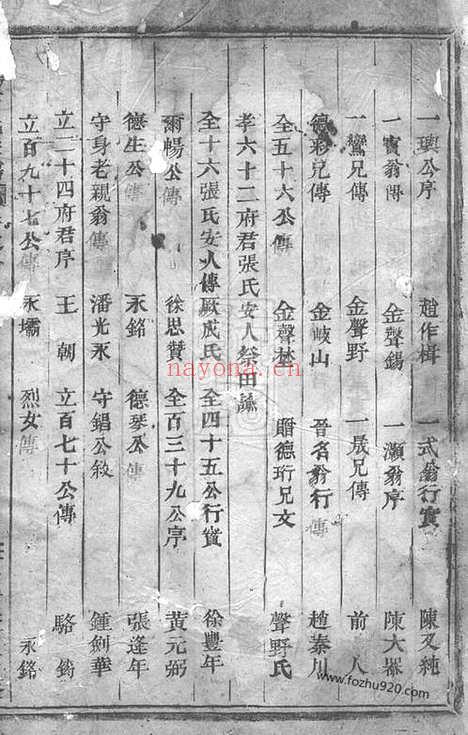 一璵公序 趙作楫 一式翁行實 陳又純
一實翁傳 金聲錫 一瀬翁序 陳大㮣
一鸞兄傳 金聲野 一晟兄傳 前人
德彩兄傳 金岐山 晉名翁行傳 趙秦川
全五十六公傳 金聲埜 贈德珩兄文 聲野氏
孝六十二府君張氏安人祭田議
全十六張氏安人傳 厥成氏 全四十五公行實 徐豐年
爾暢公傳 徐思贊 全百三十九公序 黃元弼
德生公傳 永銘 德琴公傳 張逢年
守身老親翁傳 潘光永 守錩公敘 鍾劍華
立二十四府君序 王朝 立百七十公傳 駱鈞
立百九十七公傳 永壩 烈女傳 永銘
nayona.cn
www.fozhu920.com